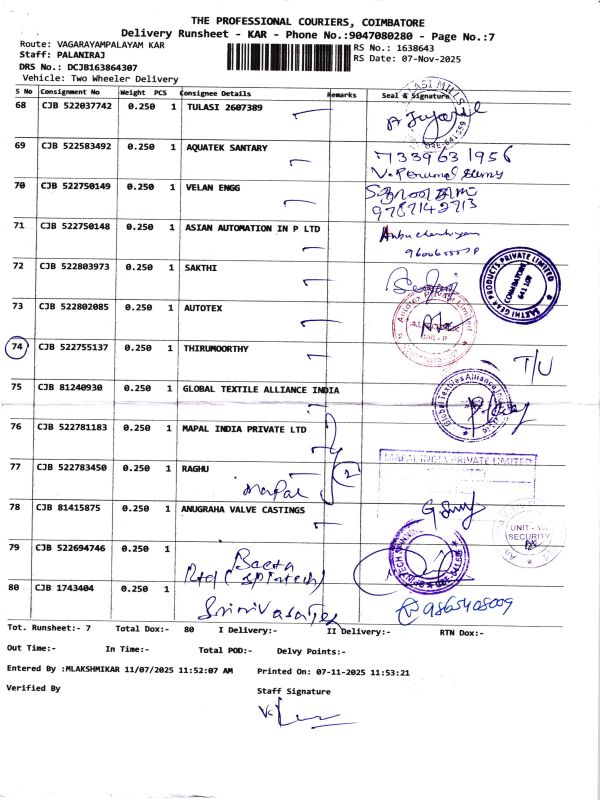 THE PROFESSIONAL COURIERS, COIMBATORE
Delivery Runsheet - KAR - Phone No.:9047080280 - Page No.:7
Route: VAGARAYAMPALAYAM KAR
RS No.: 1638643
Staff: PALANIRAJ
RS Date: 07-Nov-2025
DRS No.: DCJB163864307
Vehicle: Two Wheeler Delivery
S No Consignment No Weight PCS Consignee Details Remarks Seal & Signature
68 CJB 522037742 0.250 1 TULASI 2607389
69 CJB 522583492 0.250 1 AQUATEK SANTARY 7339631956
70 CJB 522750149 0.250 1 VELAN ENGG
71 CJB 522750148 0.250 1 ASIAN AUTOMATION IN P LTD
72 CJB 522803973 0.250 1 SAKTHI SAKTHI GEAR PRODUCTS PRIVATE LIMITED COIMBATORE
73 CJB 522802085 0.250 1 AUTOTEX
74 CJB 522755137 0.250 1 THIRUMOORTHY T/U
75 CJB 81240930 0.250 1 GLOBAL TEXTILE ALLIANCE INDIA
76 CJB 522781183 0.250 1 MAPAL INDIA PRIVATE LTD
MAPAL INDIA PRIVATE LIMITED
77 CJB 522783450 0.250 1 RAGHU 2
mapal
78 CJB 81415875 0.250 1 ANUGRAHA VALVE CASTINGS
UNIT - VII
SECURITY
79 CJB 522694746 0.250 1
80 CJB 1743404 0.250 1 9865408009
Tot. Runsheet:- 7 Total Dox:- 80 I Delivery:- II Delivery:- RTN Dox:-
Out Time:- In Time:- Total POD:- Delvy Points:-
Entered By :MLAKSHMIKAR 11/07/2025 11:52:07 AM Printed On: 07-11-2025 11:53:21
Verified By Staff Signature